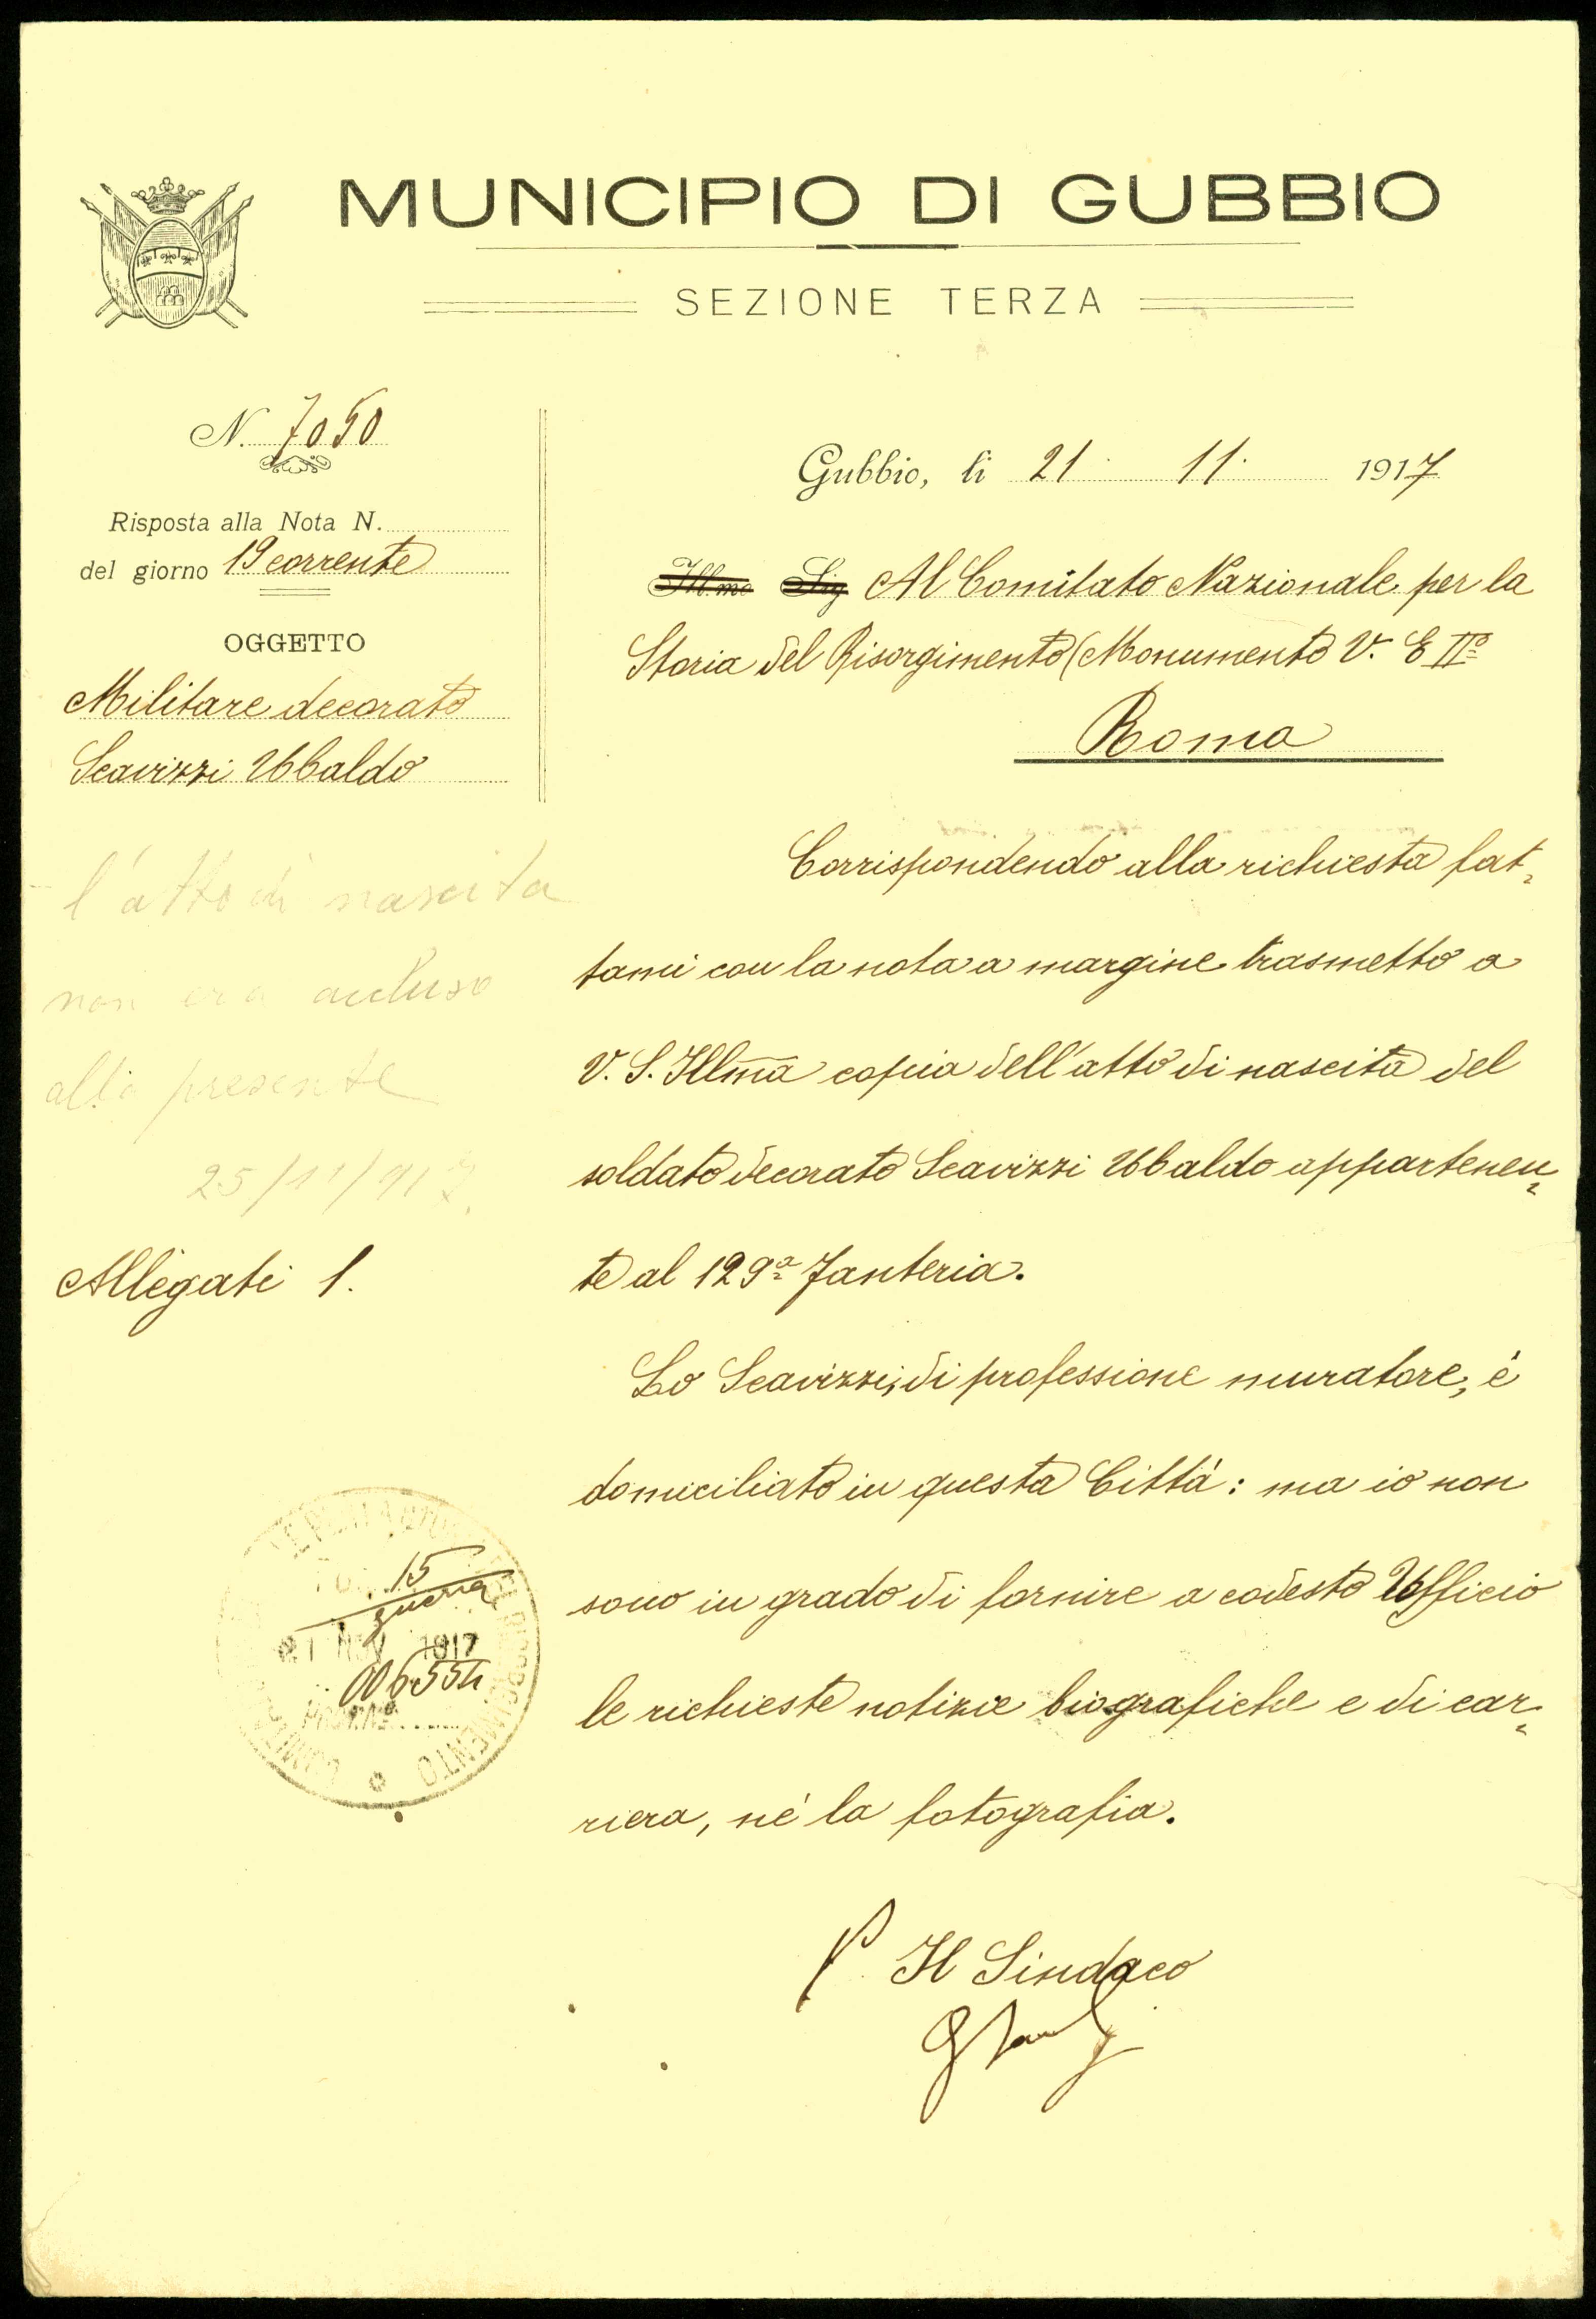 MUNICIPIO DI GUBBIO
SEZIONE TERZA
N. 7050
Risposta alla Nota N.
del giorno 19 corrente
OGGETTO
Militare decorato
Scavizzi Ubaldo
Gubbio, li 21. 11. 1917
Illmo Sig Al Comitato Nazionale per la
Storia del Risorgimento (Monumento V. E IIo
Roma
l'atto di nascita
non era accluso
alla presente
25/11/917
Allegati 1.
Corrispondendo alla richiesta fat=
tami con la nota a margine trasmetto a
V. S. Illma copia dell'atto di nascita del
soldato decorato Scavizzi Ubaldo appartenen=
te al 129a Fanteria.
Lo Scavizzi, di professione muratore, è
domiciliato in questa Città: ma io non
sono in grado di fornire a codesto Ufficio
le richieste notizie biografiche e di car=
riera, nè la fotografia.
15
guerra
21 NOV 1917
006554
RISORGIMENTO
P. Il Sindaco